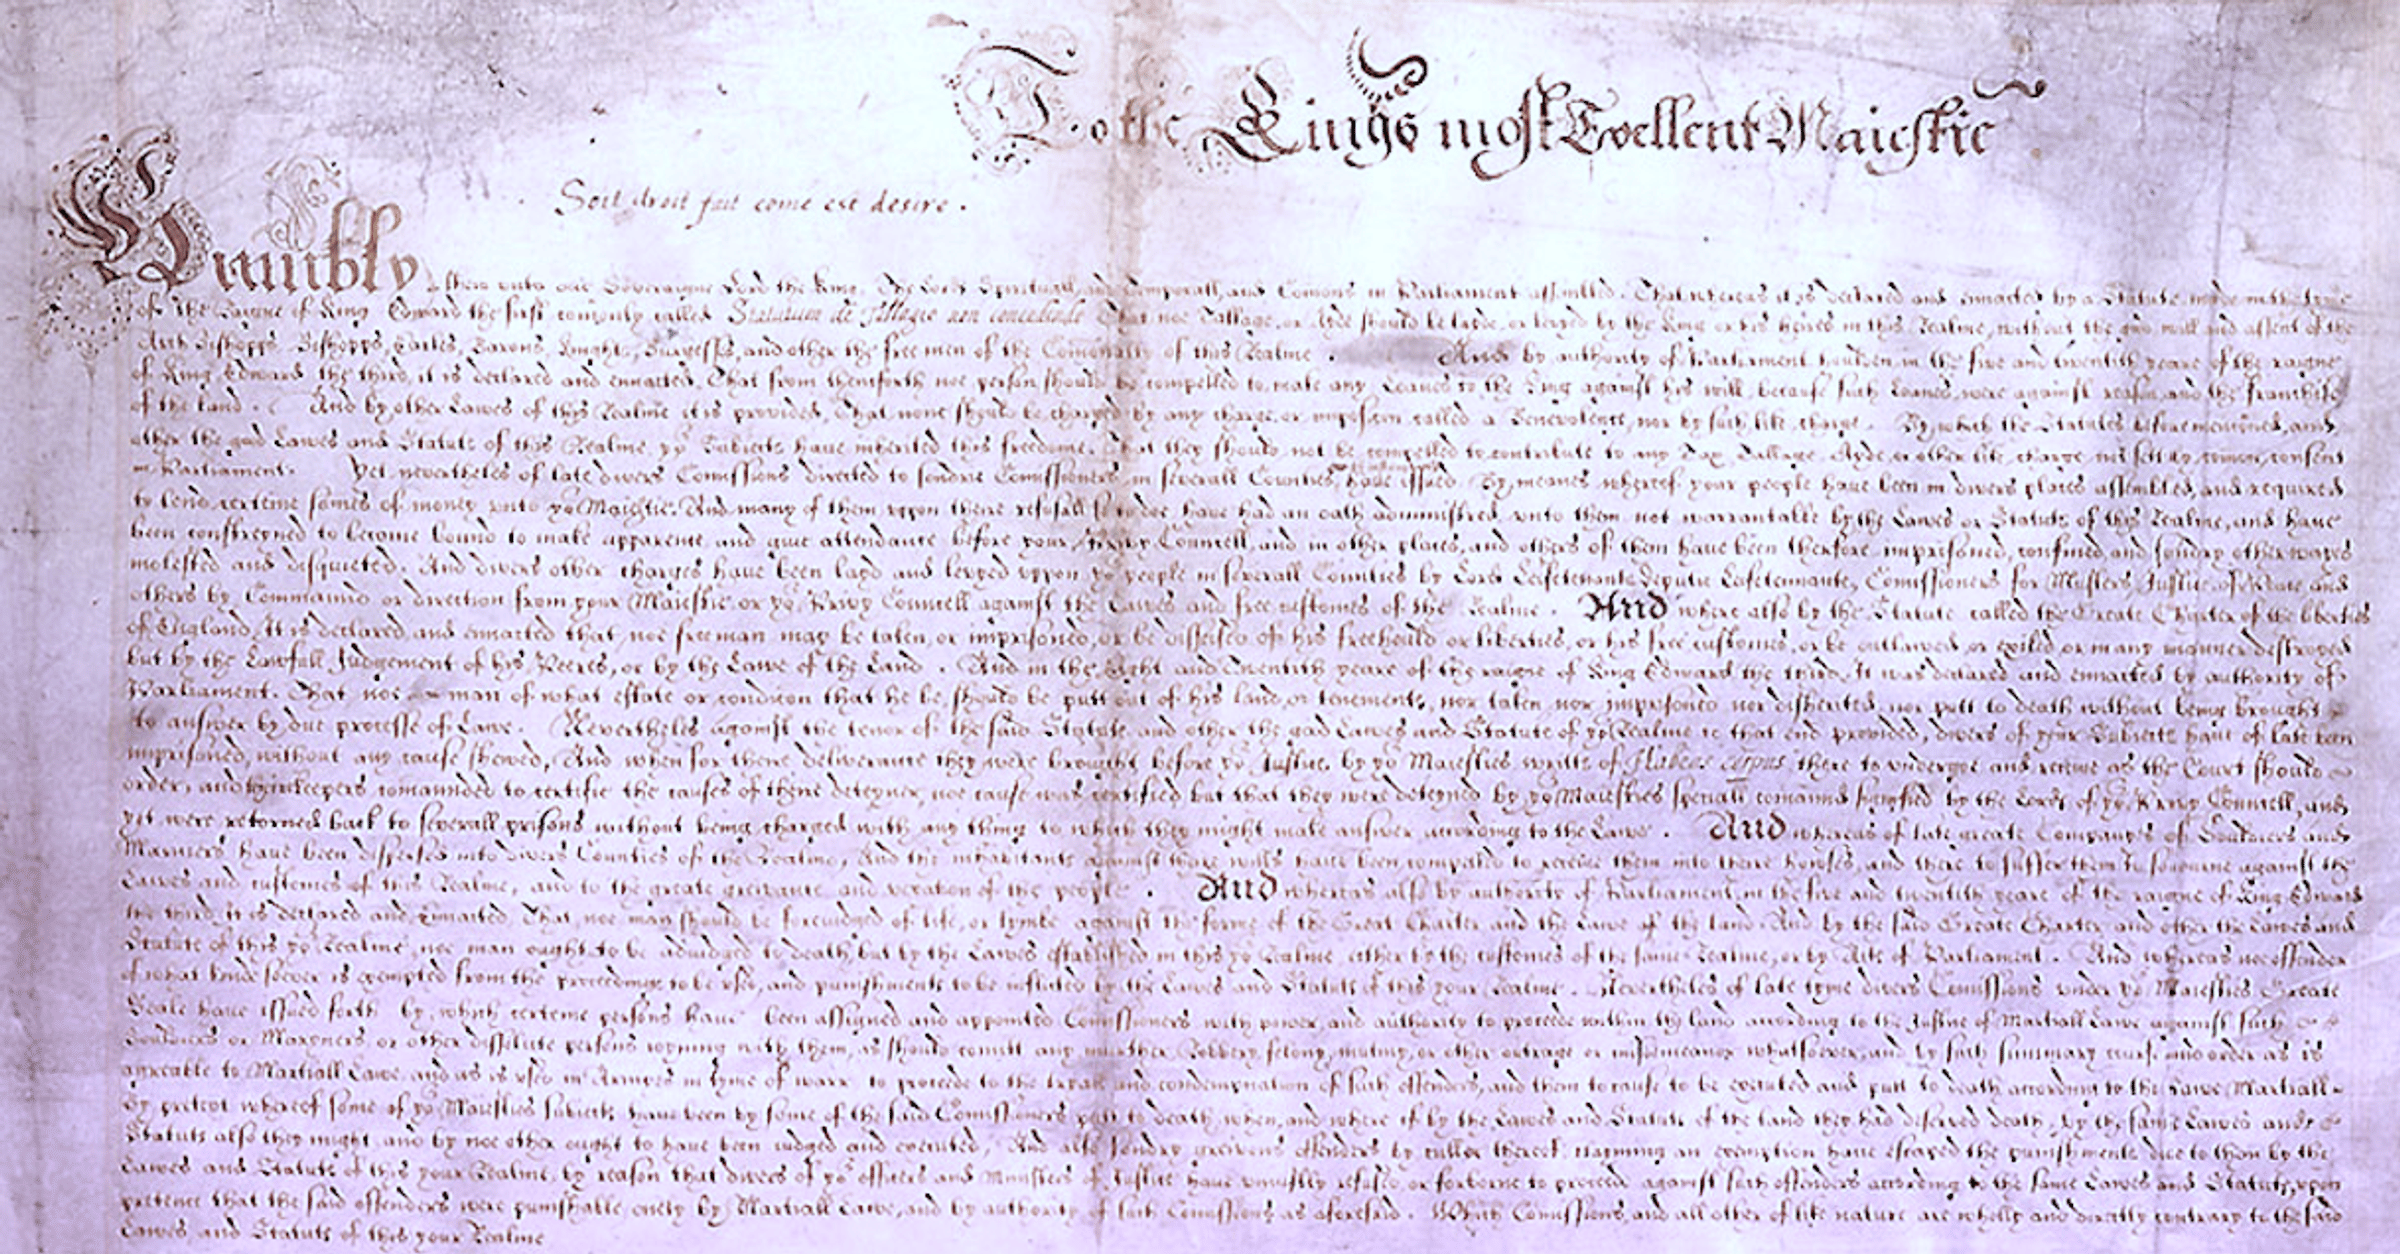 To the Kings most Excellent Maiestie
Soit droit fait come est desire.
Humbly shew unto our Soveraigne Lord the King, The Lords Spirituall and Temporall, and Comons in Parliament assembled. That whereas it is declared and enacted by a Statute made in the tyme
of the Raigne of King Edward the first comonly called Statutum de Tallagio non concedendo That noe Tallage or Ayde should be layde or levyed by the King or his heires in this Realme, without the good will and assent of the
Arch Bishopps Bishopps, Earles, Barons, Knights, Burgesses, and other the free men of the Comonalty of this Realme. And by authority of Parliament houlden in the five and twentith yeare of the raigne
of King Edward the third, it is declared and enacted, That from thenceforth noe person should be compelled to make any Loanes to the King against his will because such Loanes were against reason and the franchise
of the land. And by other Lawes of this Realme it is provided, That none should be charged by any charge or imposicion called a Benevolence, nor by such like charge. By which the Statutes before mencioned, and
other the good Lawes and Statuts of this Realme, yor Subiects have inherited this freedome, That they should not be compelled to contribute to any Tax, Tallage, Ayde, or other like charge not sett by comon consent
in Parliament. Yet nevertheles of late divers Comissions directed to sondrie Comissioners in severall Counties have issued, By meanes whereof your people have been in divers places assembled, and required
to lend certeine somes of money unto yor Maiestie. And many of them uppon there refusall so to doe have had an oath administred unto them not warrantable by the Lawes or Statuts of this Realme, and have
been constreyned to become bound to make apparence and give attendance before your Privy Councell, and in other places, and others of them have been therfore imprisoned, confined, and sondry other waies
molested and disquieted. And divers other charges have been layd and levyed uppon yor people in severall Counties by Lords Leiftenants, Deputie Leiftennants, Comissioners for Musters, Justics of Peace and
others by Commaund or direction from your Maiestie or yor Privy Councell against the Lawes and free customes of the Realme. And where also by the Statute called the Great Charter of the liberties
of England, It is declared and enacted that noe freeman may be taken or imprisoned, or be disseised of his freehould or liberties, or his free customes, or be outlawed or exiled or in any manner destroyed
but by the Lawfull Judgement of his Peeres, or by the Lawe of the Land. And in the eight and twentith yeare of the raigne of King Edward the third, It was declared and enacted by authority of
Parliament. That noe man of what estate or condicion that he be, should be putt out of his land or tenements, nor taken nor imprisoned nor disherited nor putt to death without being brought
to answer by due processe of Lawe. Nevertheles against the tenor of the said Statuts and other the good Lawes and Statuts of yor Realme to that end provided, divers of your Subiects have of late been
imprisoned, without any cause shewed, And when for there deliverance they were brought before yor Justics by yor Maiesties writts of Habeas corpus there to undergoe and receive as the Court should
order, and their keepers comaunded to certifie the causes of there deteyner, noe cause was certified but that they were deteyned by yor Maiesties speciall comaund signified by the Lords of yor Privy Councell, and
yet were retorned back to severall prisons without being charged with any thing to which they might make answer according to the Lawe. And whereas of late great Companyes of Souldiers and
Mariners have been dispersed into divers Counties of the Realme, And the inhabitants against there wills have been compelled to receive them into there howses, and there to suffer them to soiourne against the
Lawes and customes of this Realme, and to the great greivance and vexation of the people. And whereas also by authority of Parliament, in the five and twentith yeare of the raigne of King Edward
the third it is declared and enacted, That noe man should be forejudged of life, or lymbe against the forme of the Great Charter and the Lawe of the land. And by the said Great Charter and other the Lawes and
Statuts of this yor Realme, noe man ought to be adiudged to death but by the Lawes established in this yor Realme either by the customes of the same Realme, or by Acts of Parliament. And whereas noe offender
of what kinde soever is exempted from the proceedings to be used, and punishments to be inflicted by the Lawes and Statuts of this your Realme. Nevertheles of late tyme divers Comissions under yor Maiesties Greate
Seale have issued forth by which certeine persons have been assigned and appointed Comissioners with power and authority to proceede within the land according to the Justice of Martiall Lawe against such
Souldiers or Maryners or other dissolute persons ioyning with them, as should comitt any murther Robbery felony, mutiny, or other outrage or misdemeanor whatsoever, and by such summary course and order as is
agreable to Martiall Lawe and as is used in Armyes in tyme of warr to proceede to the tryall and condempnation of such offenders, and them to cause to be executed and putt to death according to the Lawe Martiall.
By pretext whereof some of yor Maiesties subiects have been by some of the said Comissioners putt to death, when and where if by the Lawes and Statuts of the land they had deserved death, by the same Lawes and
Statuts also they might, and by noe other ought to have been iudged and executed. And also sondry greivous offenders by cullor thereof clayming an exemption have escaped the punishments due to them by the
Lawes and Statuts of this your Realme, by reason that divers of yor officers and Ministers of Justice have uniustly refused or forborne to proceed against such offenders according to the same Lawes and Statuts, upon
pretence that the said offenders were punishable onely by Martiall Lawe, and by authority of such Comissions as aforesaid. Which Comissions and all other of like nature are wholly and directly contrary to the said
Lawes and Statuts of this your Realme